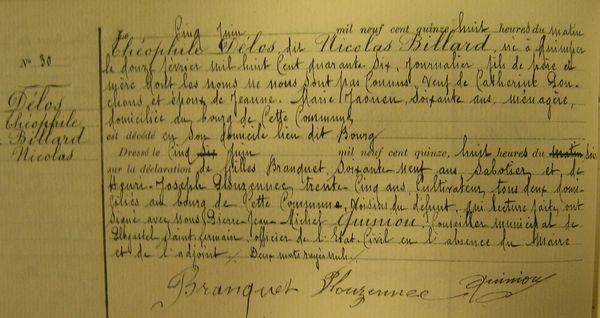 N° 30
Délos
Théophile
Billard
Nicolas
Le Cinq Juin mil neuf cent quinze, huit heures du matin
Théophile Délos, dit Nicolas Billard, né à Quimper
le douze février mil huit Cent quarante Six, Journalier, fils de père et
mère dont les noms ne nous sont pas Connus, Veuf de Catherine
et époux de Jeanne-Marie Jaouen, Soixante ans, ménagère,
domiciliée du bourg de Cette Commune,
est décédé en son domicile lieu dit Bourg
Dressé le Cinq Juin mil neuf cent quinze, huit heures du matin Soir
sur la déclaration de Gilles Branquet, Soixante neuf ans, Sabotier et de
Henri-Joseph Plouzennec, trente Cinq ans, Cultivateur, tous deux domi-
ciliés au bourg de Cette Commune, Voisins du défunt, qui lecture faite, ont
Signé avec Nous, Pierre-Jean-Michel Quiniou, Conseiller municipal de
Plogastel Saint Germain, officier de l'Etat-Civil en l'absence du Maire
et de l'adjoint. Deux mots rayés nuls.
Branquet Plouzennec Quiniou